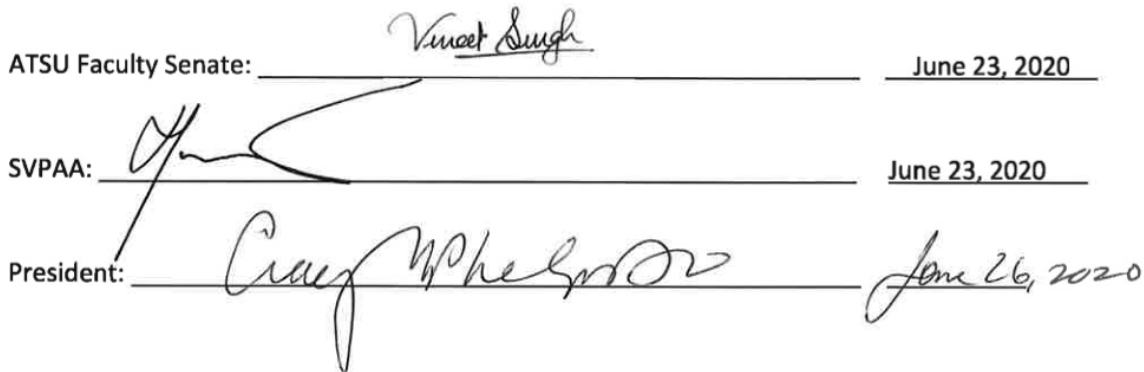 ATSU Faculty Senate: Vineet Singh June 23, 2020
SVPAA: June 23, 2020
President: Craig M Phelps DO June 26, 2020